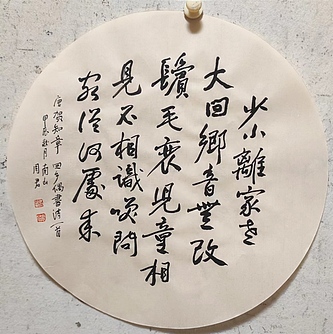 少小離家老
大回鄉音無改
鬢毛衰兒童相
見不相識笑問
客從何處來
唐賀知章回鄉偶書詩一首
甲辰秋月